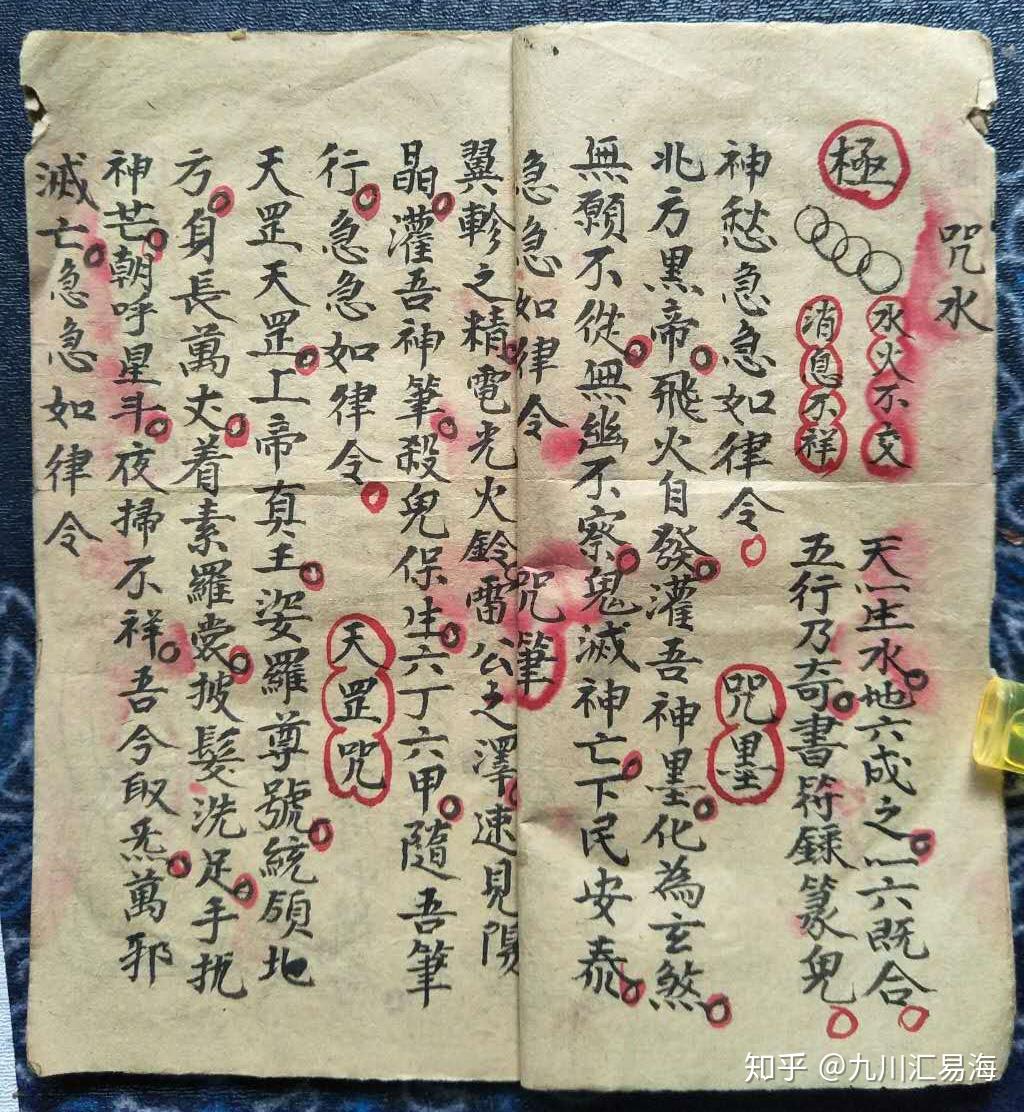 咒水
極
水火不交
消息不祥
天一生水。地六成之。一六既合。
五行乃奇。書符籙篆。鬼
神愁急急如律令。
咒墨
北方黑帝。飛火自發。灌吾神墨。化為玄煞。
無願不從。無幽不察。鬼滅神亡。下民安泰。
急急如律令
咒筆
翼軫之精。電光火鈴。雷公之澤。速見陽
晶。灌吾神筆。殺鬼保生。六丁六甲。隨吾筆
行。急急如律令。
天罡咒
天罡天罡。上帝真主。姿羅尊號。統領地
方。身長萬丈。着素羅裳。披髮洗足。手扰
神芒。朝呼星斗。夜掃不祥。吾今取炁。萬邪
滅亡。急急如律令
知乎 @九川汇易海